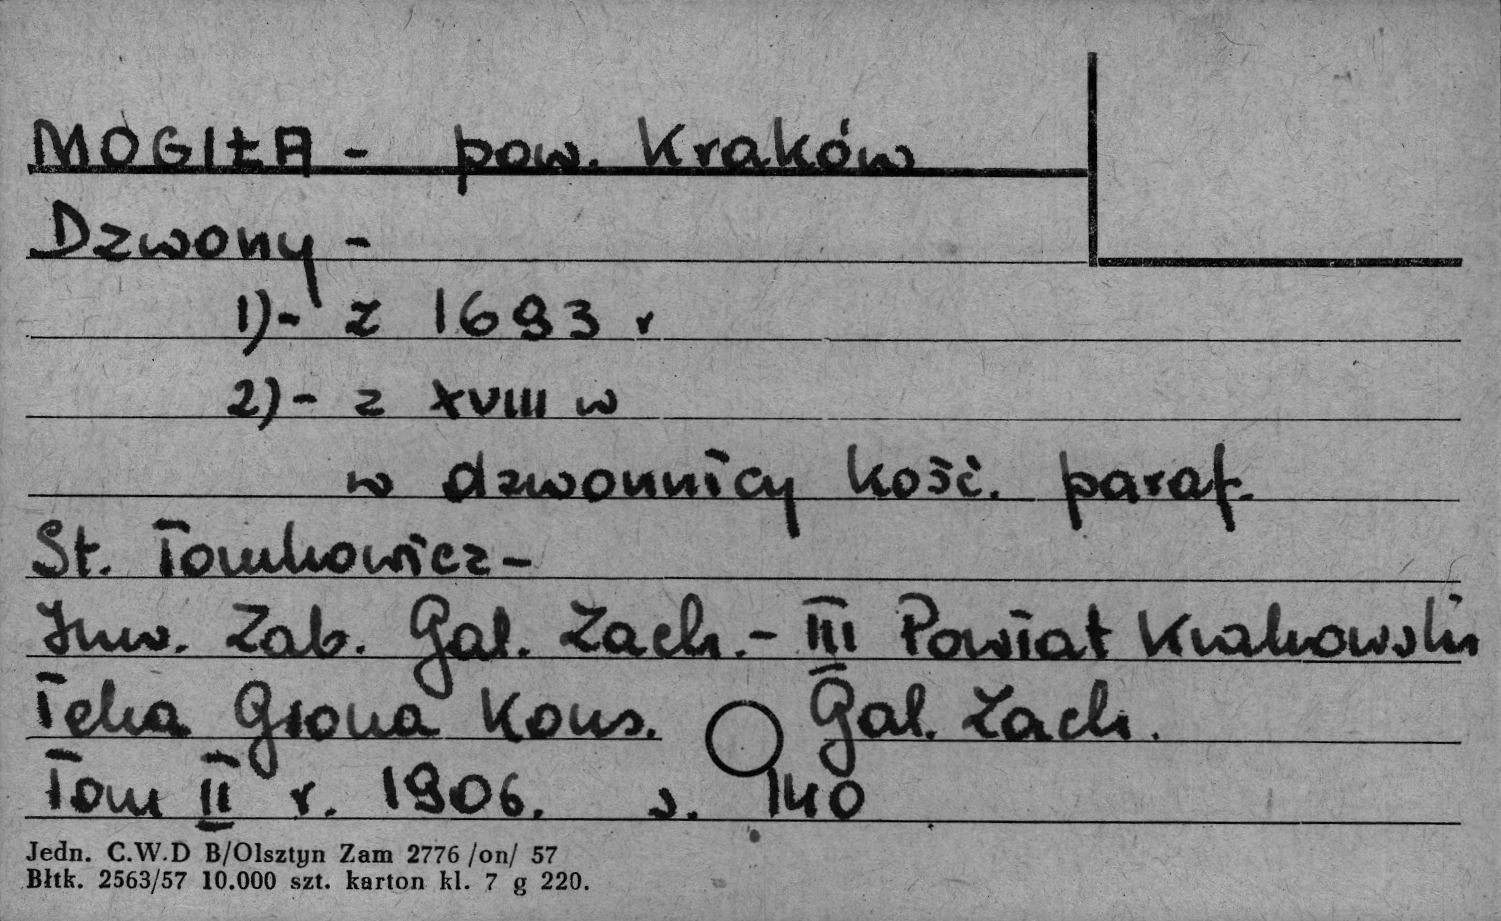 MOGIŁA - pow. Kraków
Dzwony -
1)- z 1693 r
2)- z XVIII w
w dzwonnicy kość. paraf.
St. Tomkowicz -
Inw. Zab. Gal. Zach. - III Powiat Krakowski
Teka Grona Kons. Gal. Zach.
Tom II r. 1906. s. 140
Jedn. C.W.D B/Olsztyn Zam 2776 /on/ 57
Błtk. 2563/57 10.000 szt. karton kl. 7 g 220.